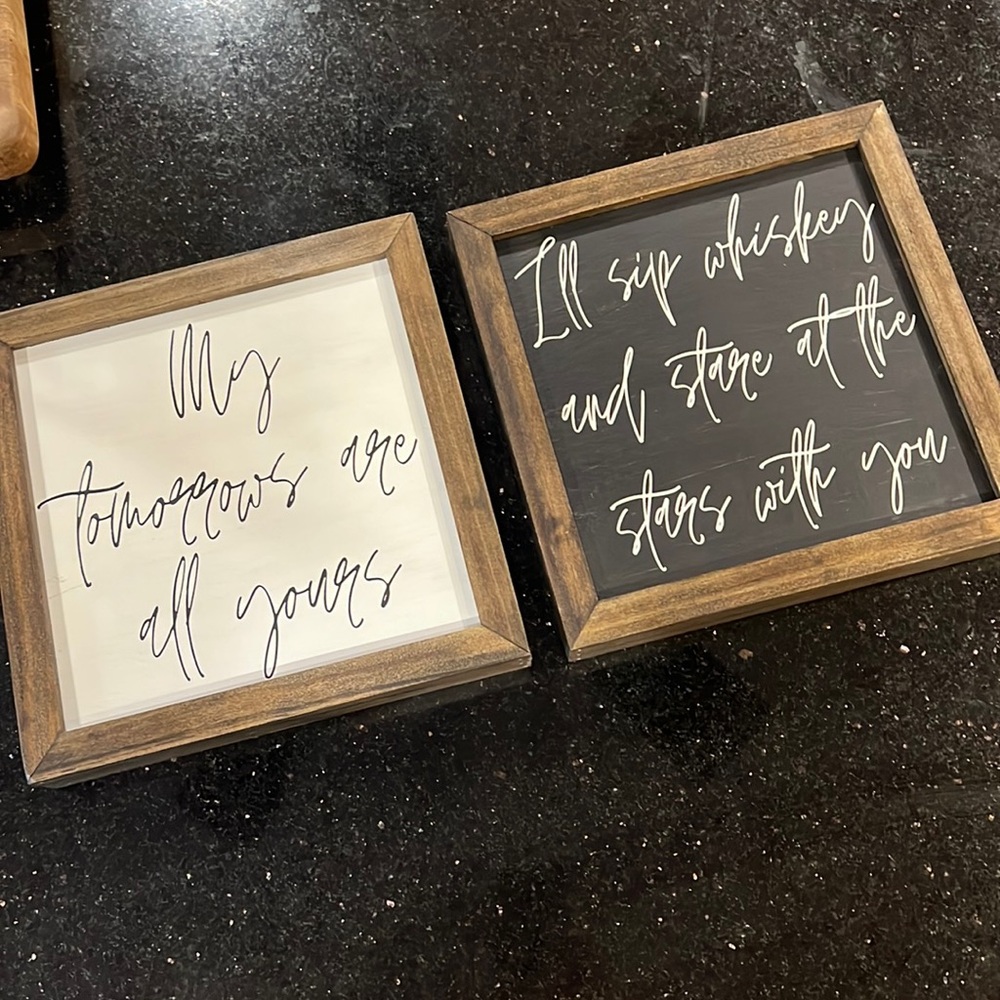 My
tomorrows are
all yours
I'll sip whiskey
and stare at the
stars with you